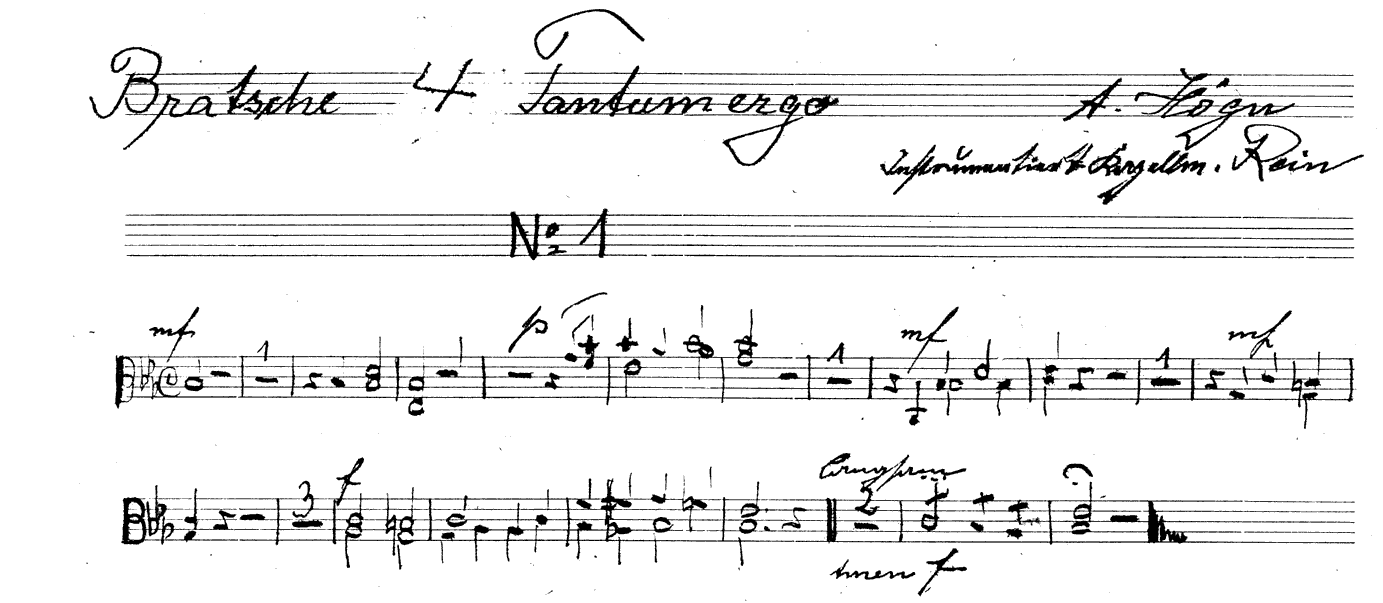 Bratsche 4 Tantum ergo A. Högn
Instrumentiert Kapellm. Rein
No 1
mf p mf mf
1 1 1
f langsam
3 2
Amen f